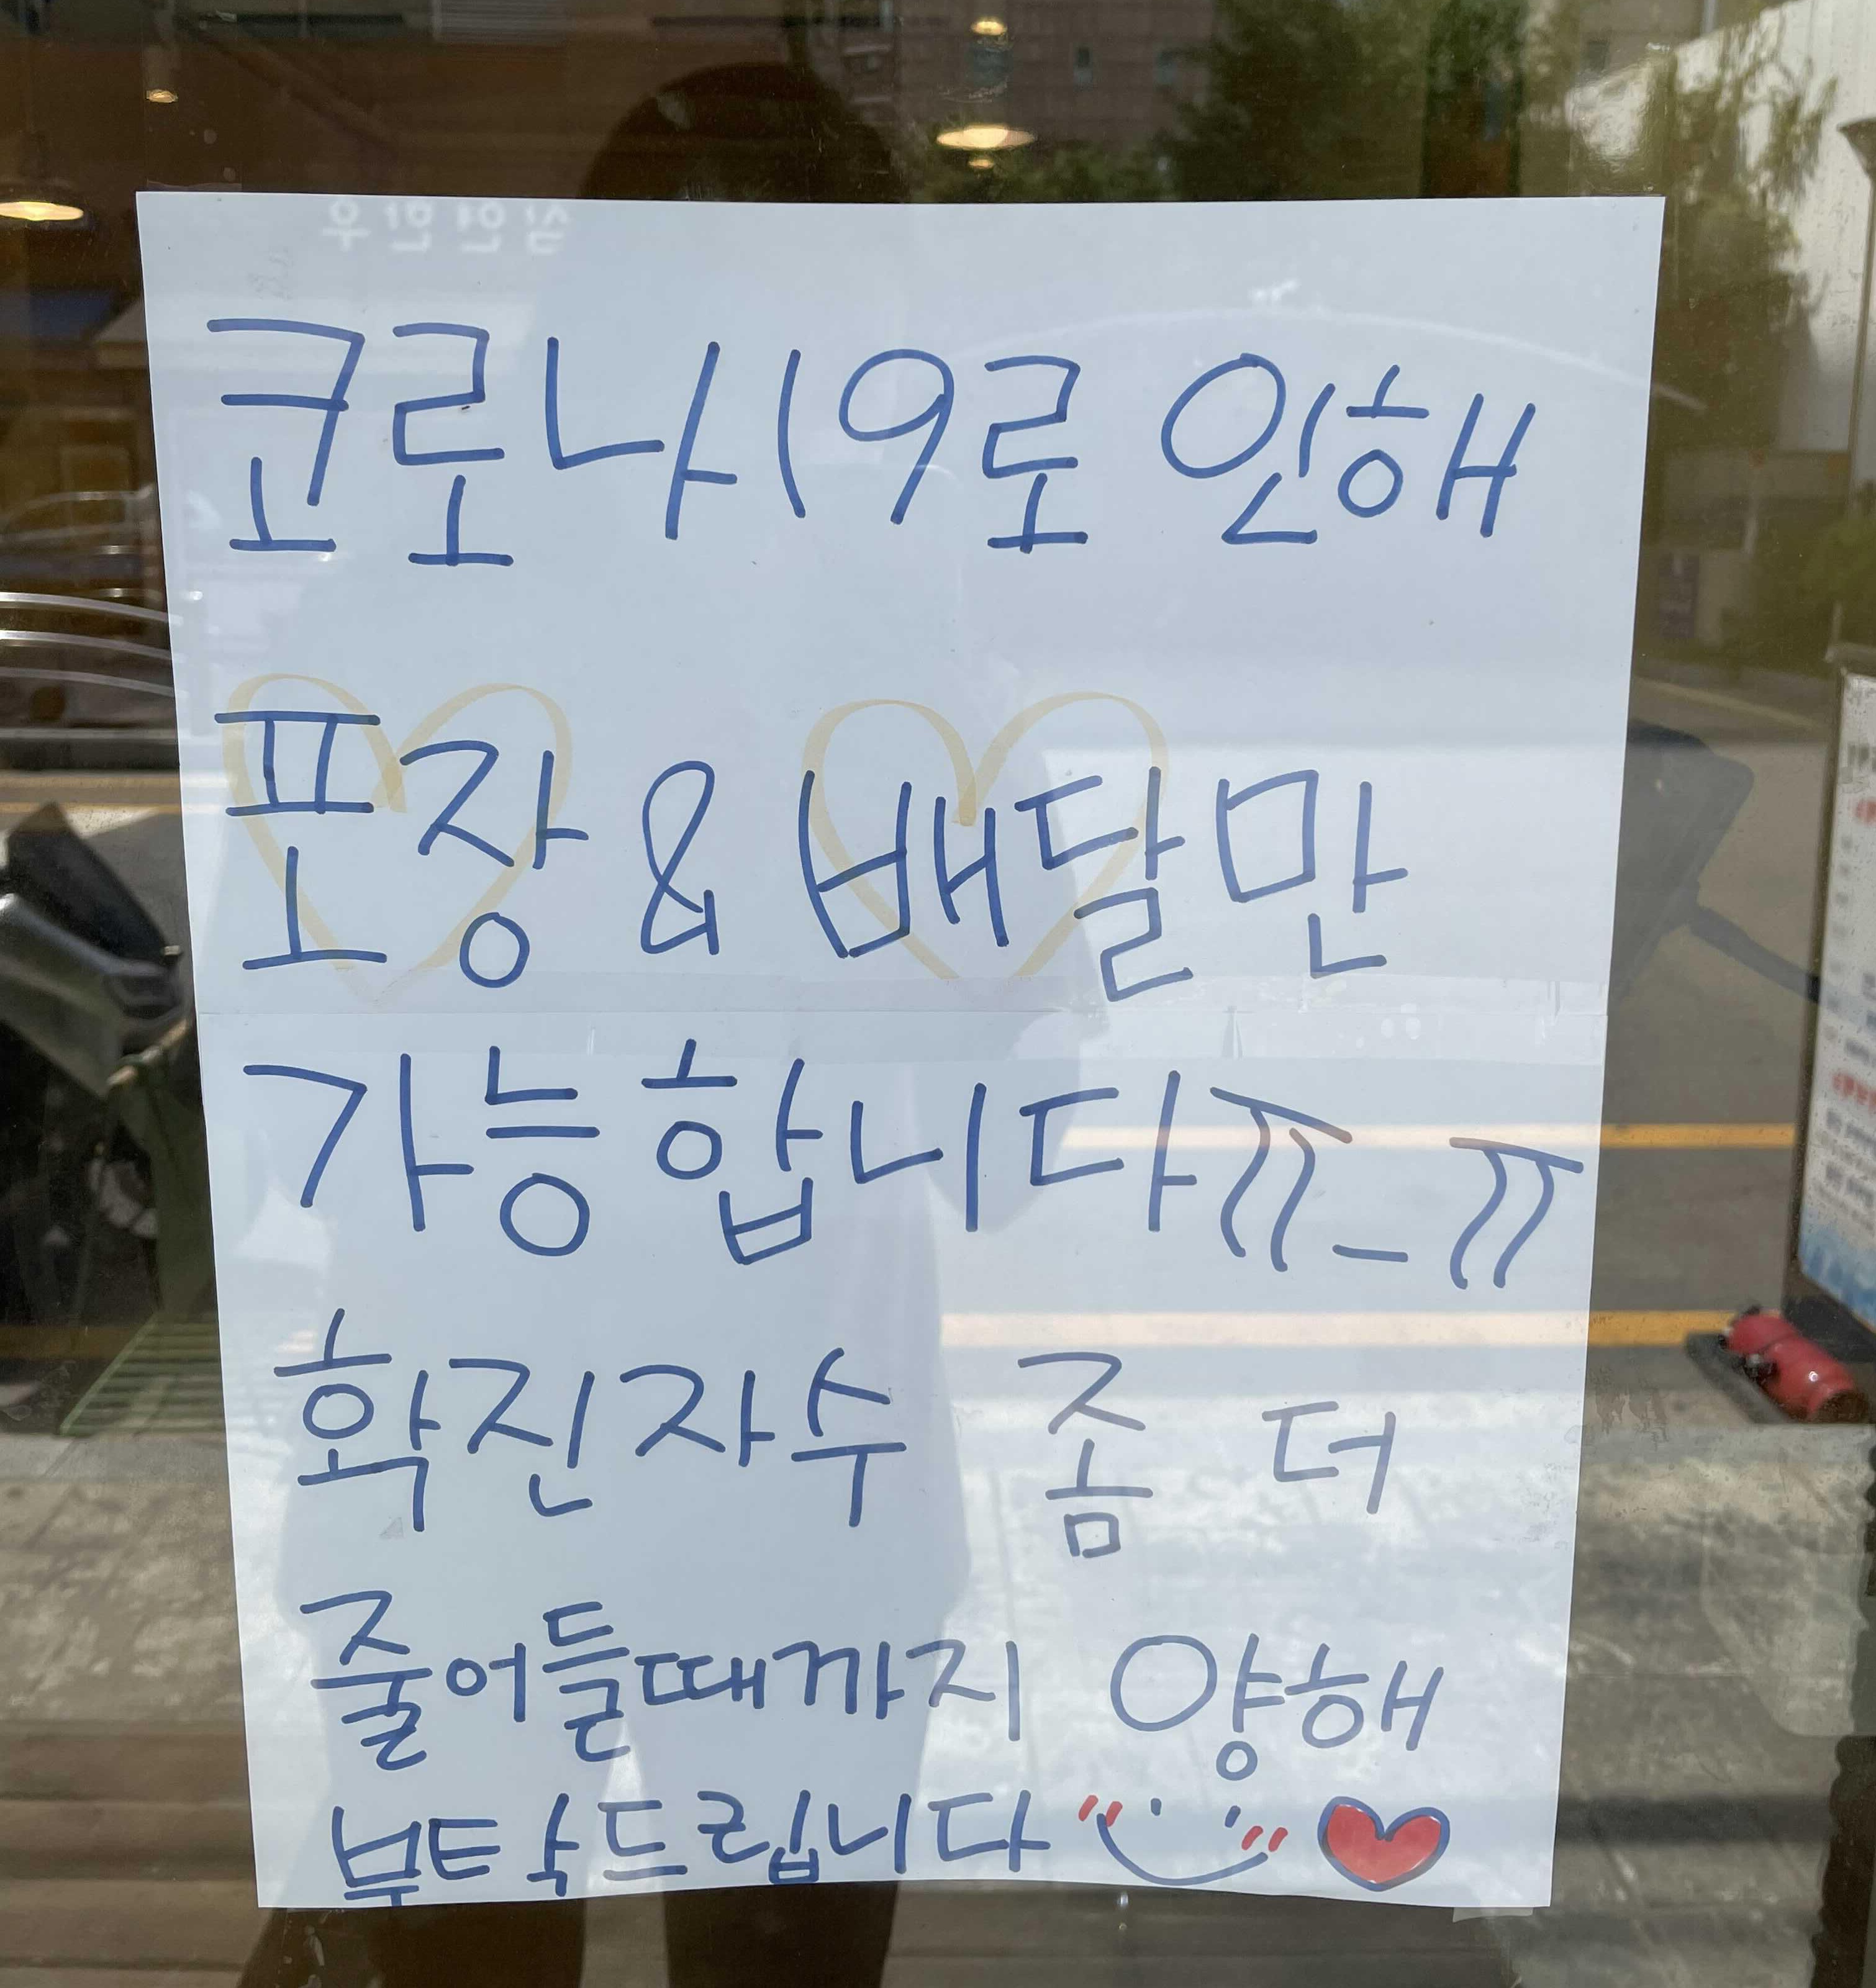 코로나19로 인해
포장 & 배달만
가능합니다ㅠ_ㅠ
확진자수 좀 더
줄어들때까지 양해
부탁드립니다